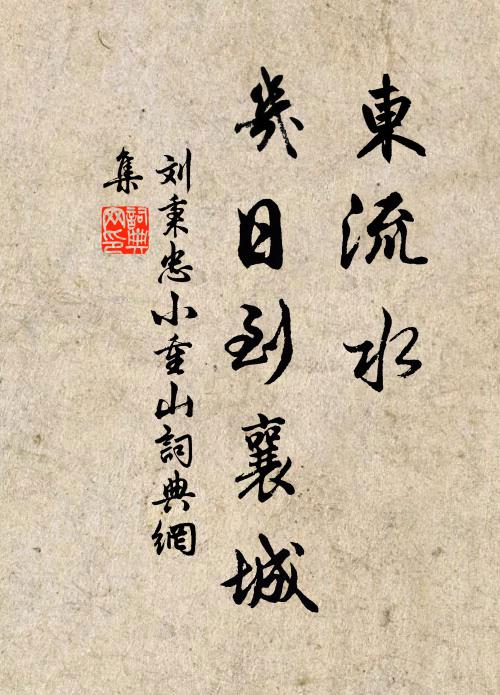 東流水
幾日到襄城
刘秉忠小重山詞典網
集
詞典网印